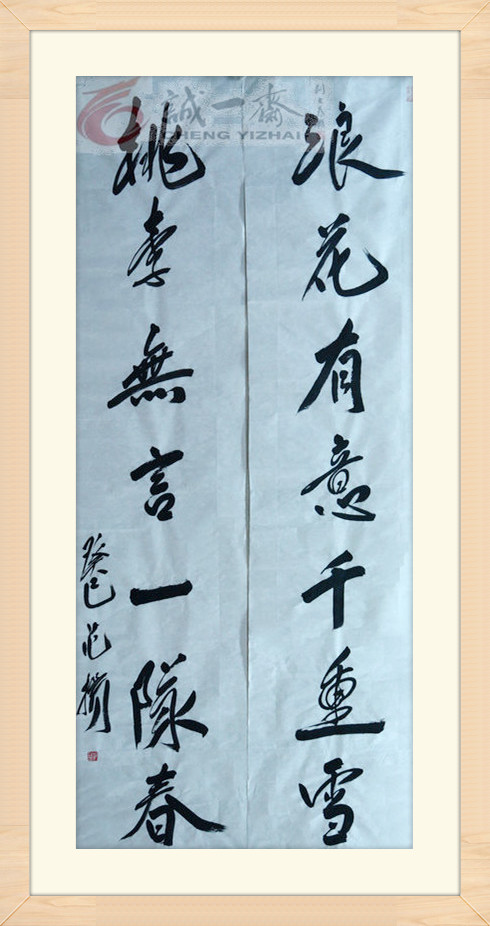 浪花有意千重雪
桃李無言一隊春
癸巳
誠一齋
CHENG YIZHAI